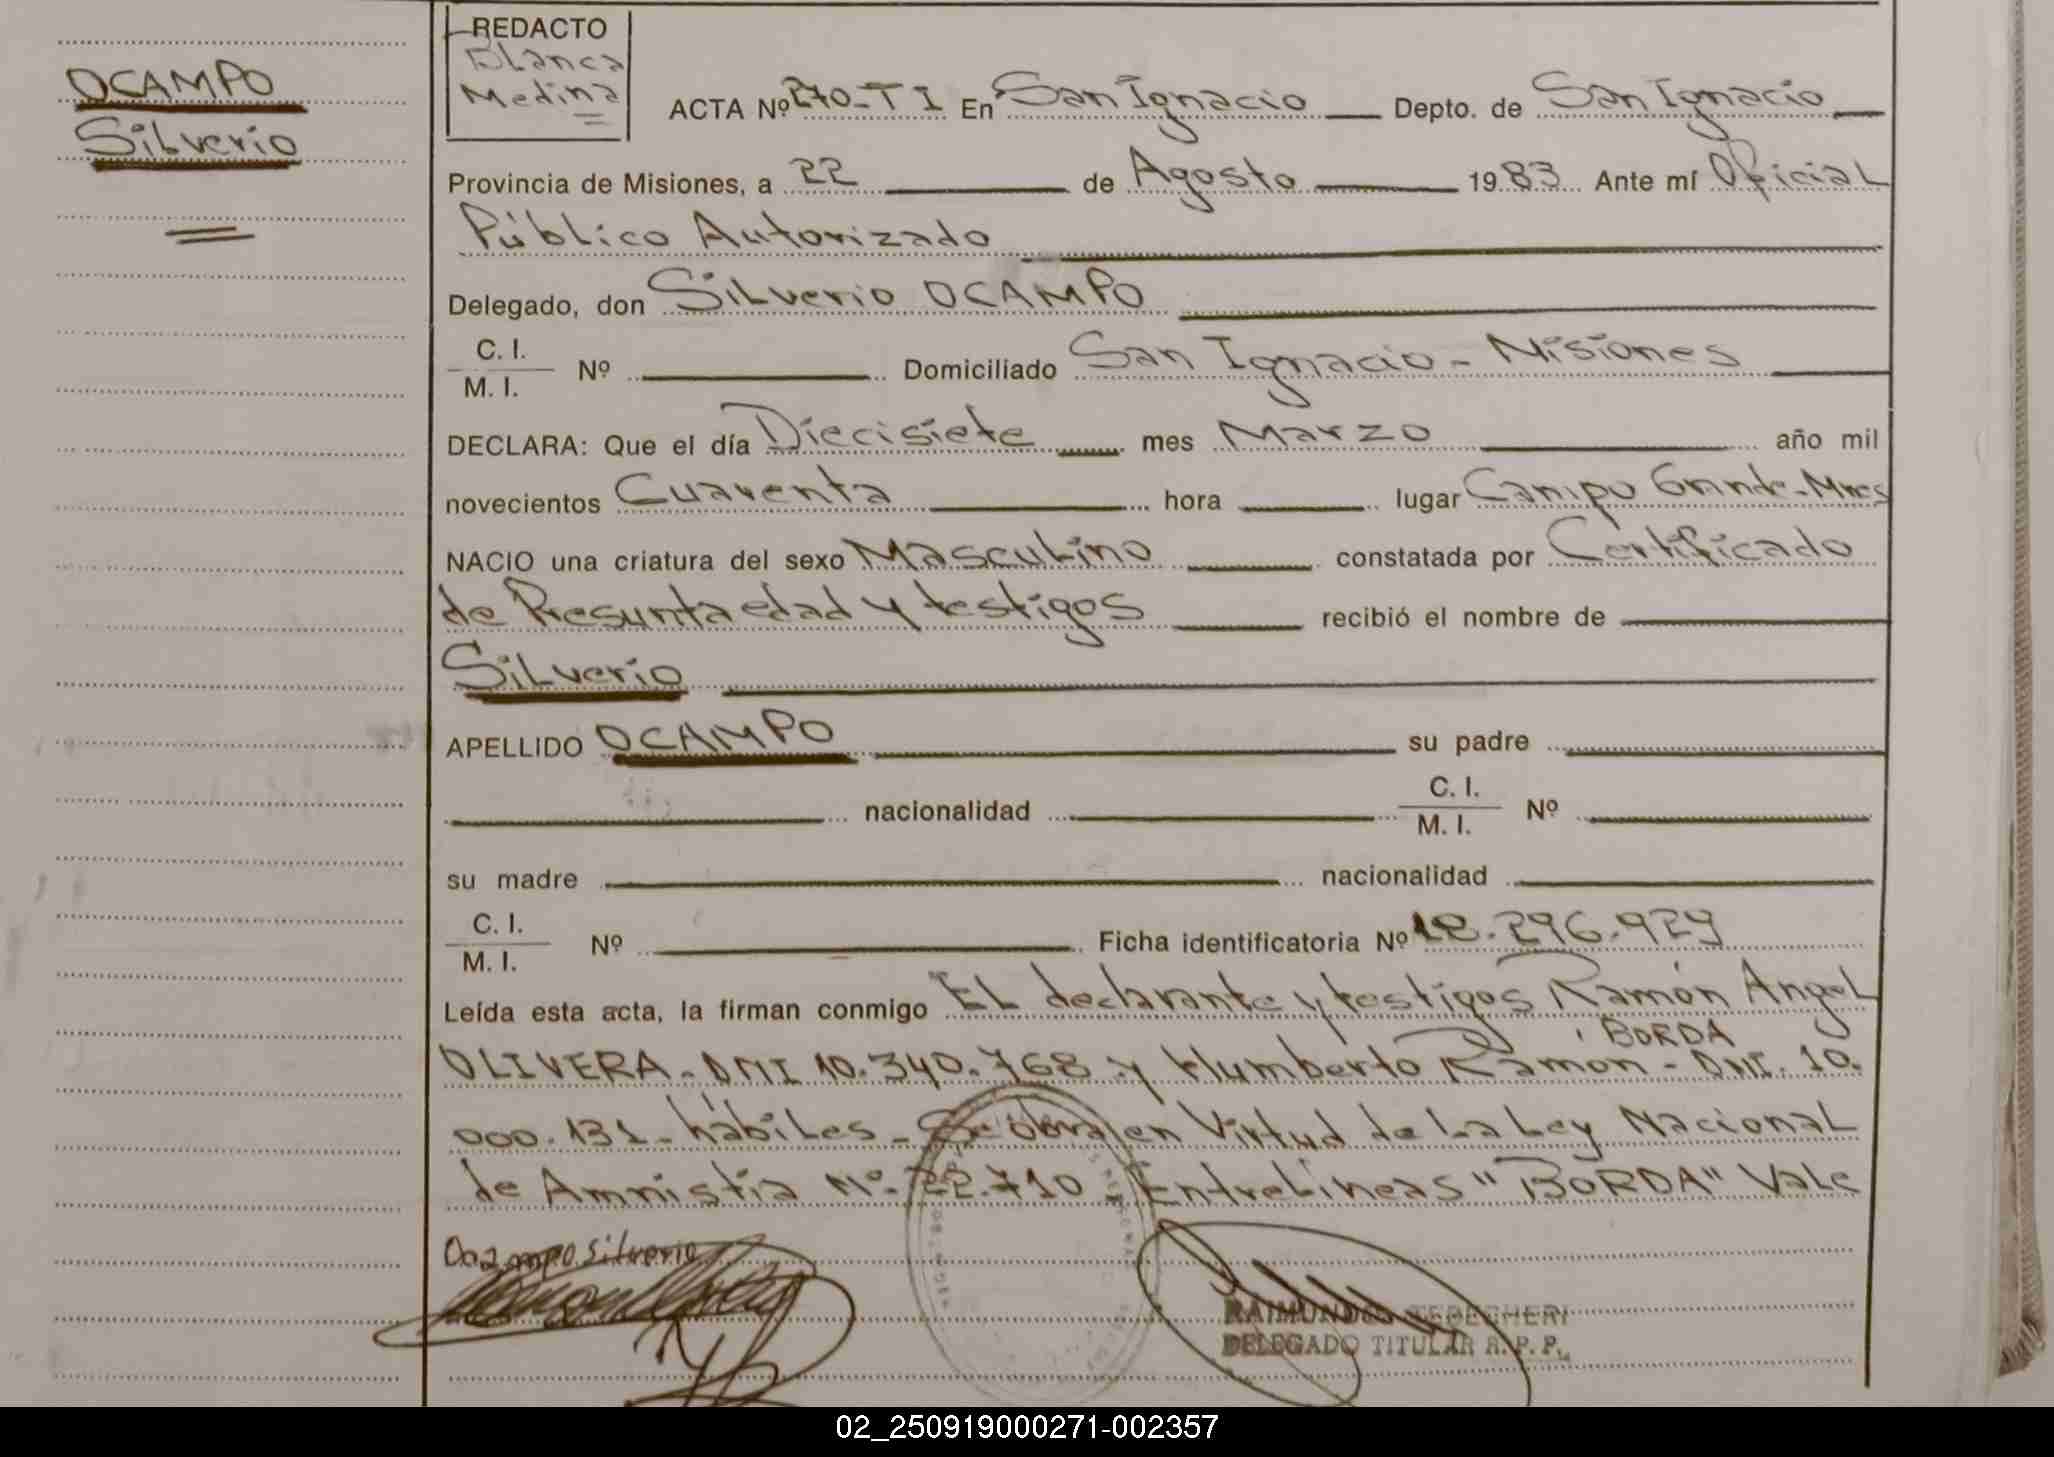 OCAMPO
Silverio
REDACTO
Blanca
Medina
ACTA Nº 270-TI En San Ignacio Depto. de San Ignacio
Provincia de Misiones, a 22 de Agosto 1983 Ante mí Oficial
Público Autorizado
Delegado, don Silverio OCAMPO
C. I.
M. I. Nº Domiciliado San Ignacio - Misiones
DECLARA: Que el día Diecisiete mes Marzo año mil
novecientos Cuarenta hora lugar Campo Grande-Mnes
NACIO una criatura del sexo Masculino constatada por Certificado
de Presunta edad y testigos recibió el nombre de
Silverio
APELLIDO OCAMPO su padre
nacionalidad C. I.
M. I. Nº
su madre nacionalidad
C. I.
M. I. Nº Ficha identificatoria Nº 18.296.929
Leída esta acta, la firman conmigo El declarante y testigos Ramón Angel
BORDA
OLIVERA - DNI 10.340.768 y Humberto Ramón - DNI. 10.
000.131 - hábiles - Se obra en Virtud de La Ley Nacional
de Amnistia Nº. 22.710 EntreLíneas "BORDA" Vale
Ocampo Silverio
RAIMUNDO
DELEGADO TITULAR R. P. P.
02_250919000271-002357